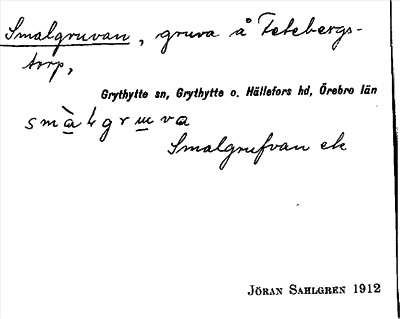 Smalgruvan, gruva å Fetebergs-
torp,
Grythytte sn, Grythytte o. Hällefors hd, Örebro län
smàlgruva
Smalgrufvan ek
JÖRAN SAHLGREN 1912